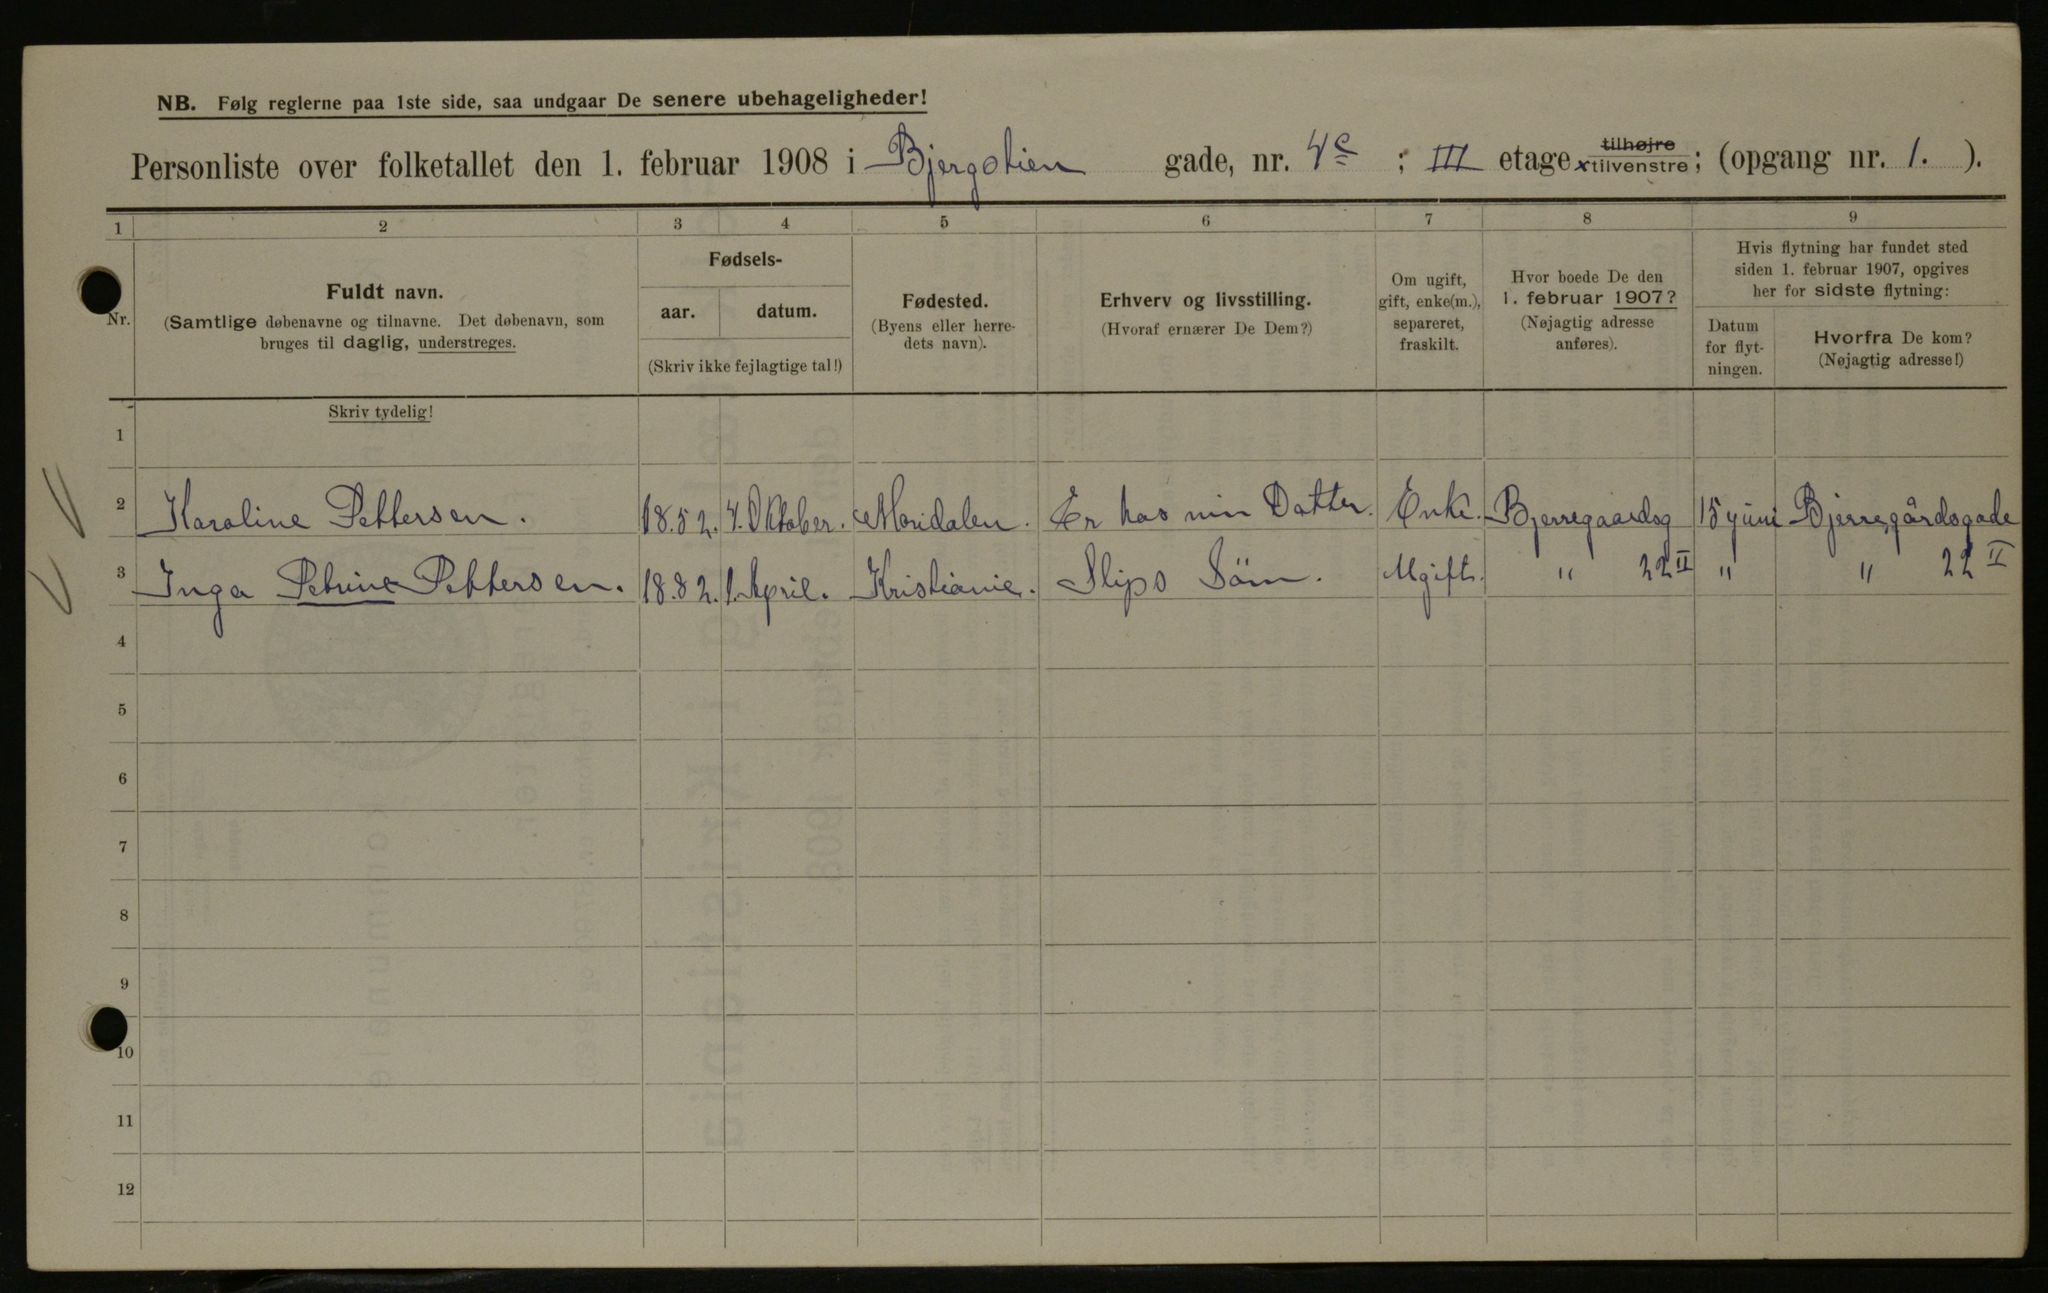 NB. Følg reglerne paa 1ste side, saa undgaar De senere ubehageligheder!
Personliste over folketallet den 1. februar 1908 i Bjergstien gade, nr. 4c ; III etage tilhøjre x tilvenstre; (opgang nr. 1. ).
1 2 3 4 5 6 7 8 9
Nr.
Fuldt navn.
(Samtlige døbenavne og tilnavne. Det døbenavn, som
bruges til daglig, understreges.
Fødsels-
aar. datum.
(Skriv ikke fejlagtige tal!)
Fødested.
(Byens eller herre-
dets navn).
Erhverv og livsstilling.
(Hvoraf ernærer De Dem?)
Om ugift,
gift, enke(m.),
separeret,
fraskilt.
Hvor boede De den
1. februar 1907?
(Nøjagtig adresse
anføres).
Hvis flytning har fundet sted
siden 1. februar 1907, opgives
her for sidste flytning:
Datum
for flyt-
ningen.
Hvorfra De kom?
(Nøjagtig adresse!)
Skriv tydelig!
1
2 Karoline Pettersen. 18.52. 4. Oktober. Maridalen. Er hos min Datter. Enke. Bjerregaardsg 15 juni Bjerregårdsgade
3 Inga Petrine Pettersen. 18.82. 1. April. Kristiania. Slips Söm. Ugift. " 22 II " " 22 II
4
5
6
7
8
9
10
11
12